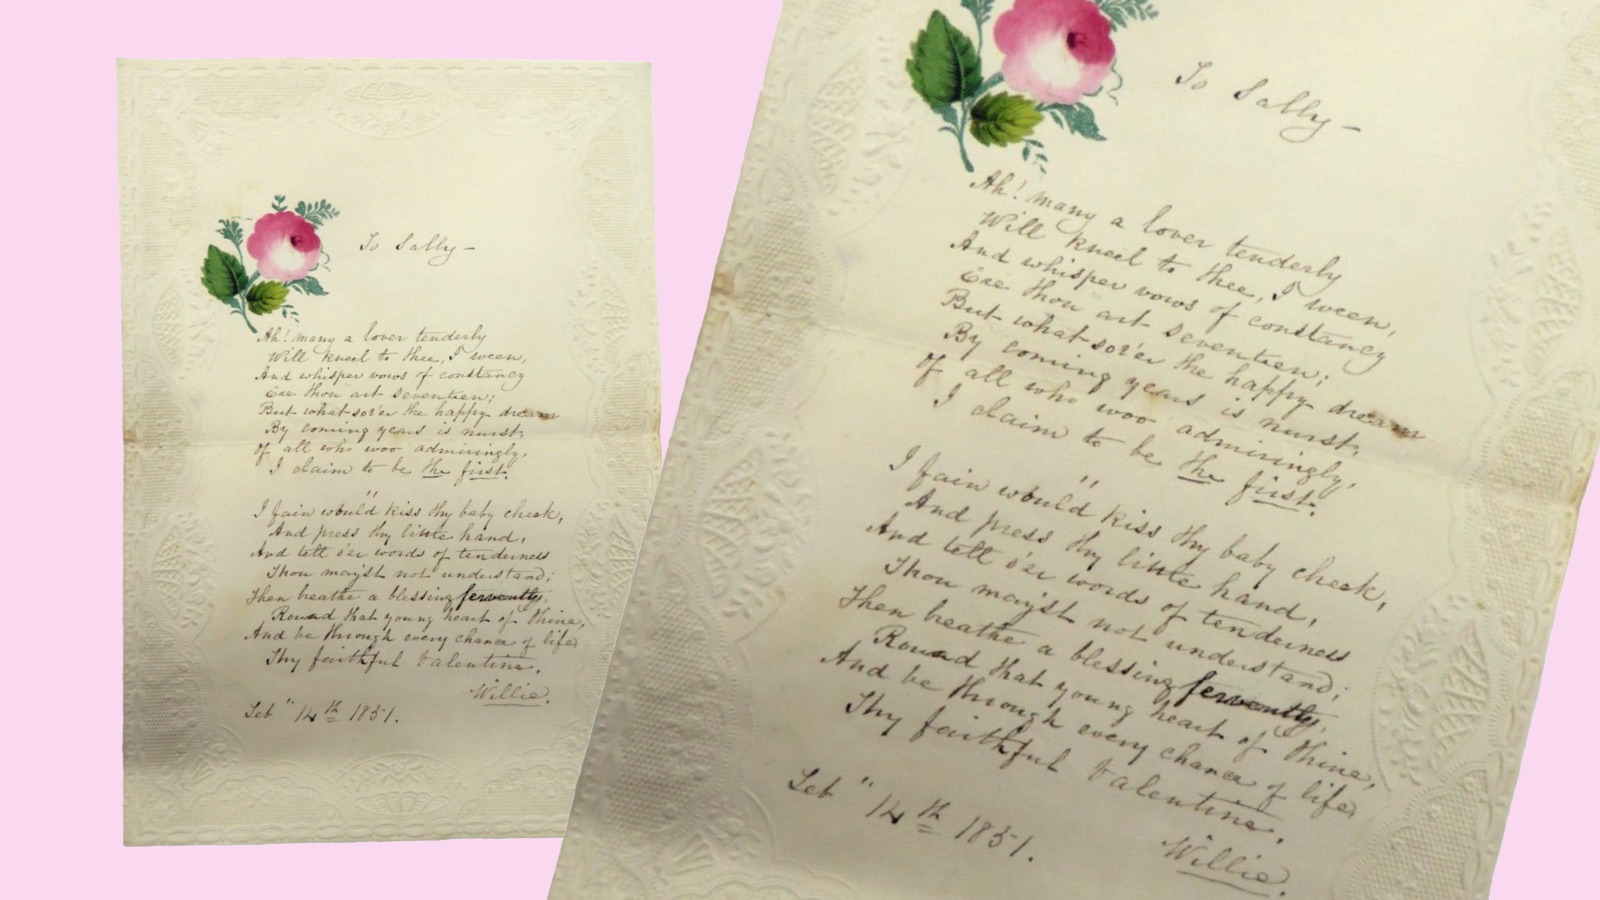 To Sally —
Ah! many a lover tenderly
Will kneel to thee, I ween,
And whisper vows of constancy
Ere thou art seventeen;
But what-soe'er the happy dream
By coming years is nurst,
Of all who woo admiringly,
I claim to be the first.
"
I fain would kiss thy baby cheek,
And press thy little hand,
And tell o'er words of tenderness
Thou may'st not understand;
Then breathe a blessing fervently,
Round that young heart of thine,
And be through every chance of life,
Thy faithful Valentine.
Willie.
Feb " 14th 1851.
To Sally —
Ah! many a lover tenderly
Will kneel to thee, I ween,
And whisper vows of constancy
Ere thou art seventeen;
But what-soe'er the happy dream
By coming years is nurst,
Of all who woo admiringly,
I claim to be the first.
"
I fain would kiss thy baby cheek,
And press thy little hand,
And tell o'er words of tenderness
Thou may'st not understand;
Then breathe a blessing fervently,
Round that young heart of thine,
And be through every chance of life,
Thy faithful Valentine.
Willie.
Feb " 14th 1851.